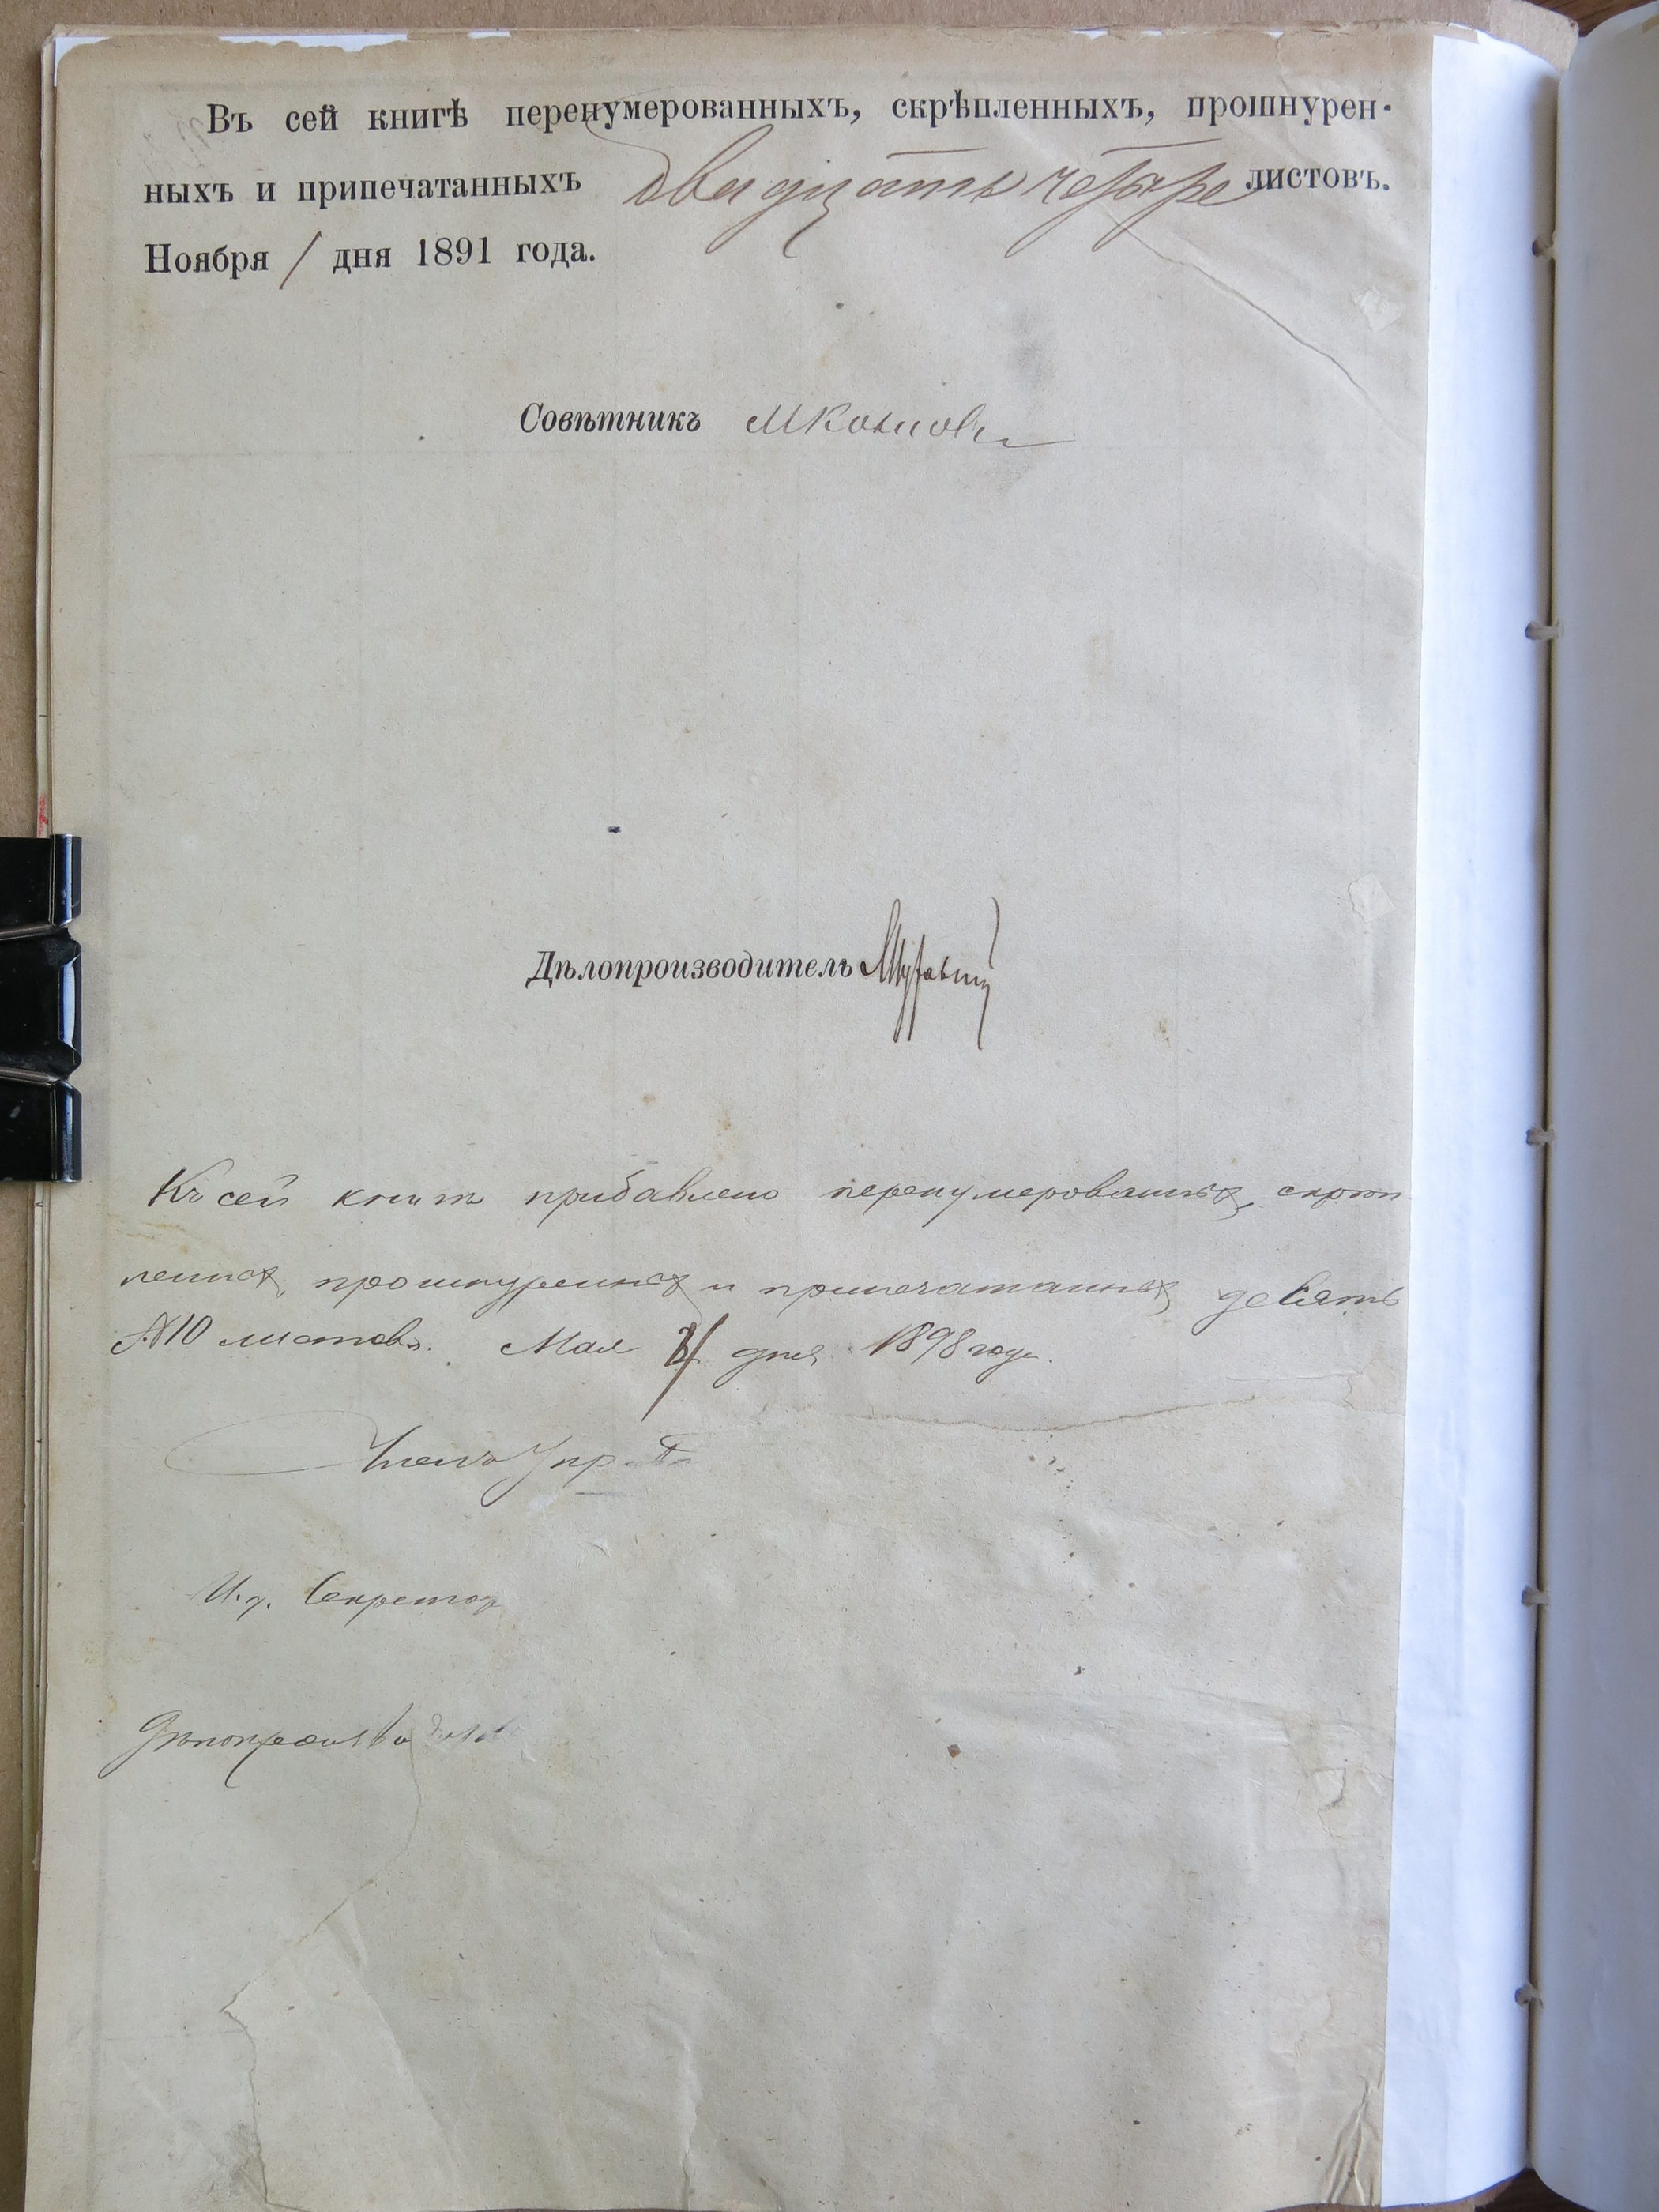 Въ сей книгѣ перенумерованныхъ, скрѣпленныхъ, прошнурен-
ныхъ и припечатанныхъ двадцать четыре листовъ.
Ноября 1 дня 1891 года.
Совѣтникъ
Дѣлопроизводитель
Къ сей книгѣ прибавлено перенумерованныхъ, скрѣп
ленныхъ, прошнуренныхъ и припечатанныхъ девять
№10 листовъ. Мая дня 1898 года.
Членъ Упр.
И. д. Секретар
Дѣлопроизводитель